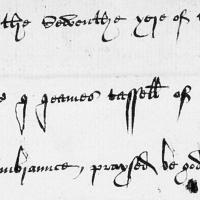 the Seventhe yere of
I Jeames tassell of
mbrance, praysed be god